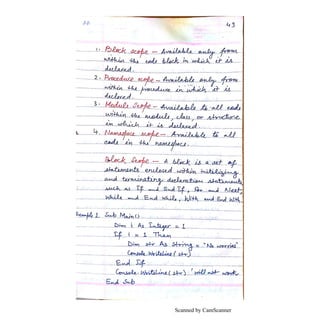 49
1. Block scope – Available only from
within the code block in which it is
declared.
2. Procedure scope – Available only from
within the procedure in which it is
declared.
3. Module Scope – Available to all code
within the module, class, or structure
in which it is declared.
4. Namespace scope – Available to all
code in the namespace.
Block Scope – A block is a set of
statements enclosed within initiating
and terminating declaration statements,
such as If and End If, For and Next,
While and End While, With and End With
Example 1. Sub Main()
Dim i As Integer = 1
If i = 1 Then
Dim str As String = "No worries"
Console.WriteLine(str)
End If
Console.WriteLine(str) 'will not work
End Sub
Scanned by CamScanner